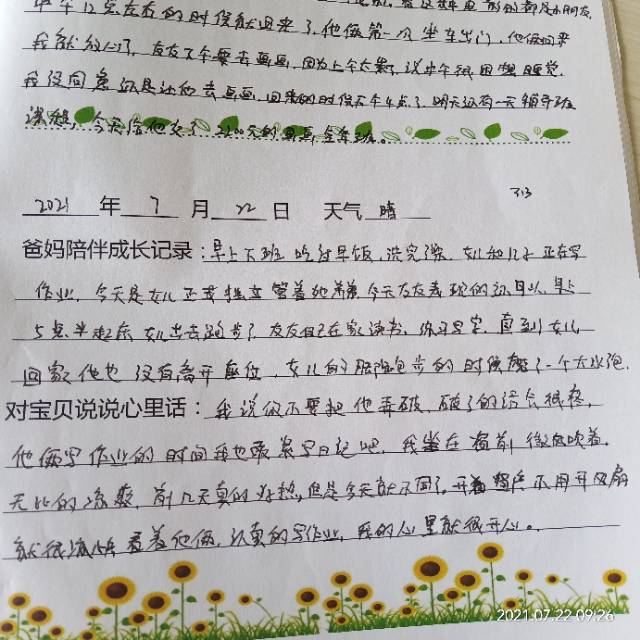 中午12点左右的时候就回来了,他俩第一次坐车出门,他俩回来
我就放心了,友友下午要去画画,因为上午太累了,说中午很困想睡觉,
我没同意还是让他去画画,回来的时候下午4点了,明天还有一天辅导班
课程,今天给他交了2200元的画画全年班。
313
2021年7月22日 天气 晴
爸妈陪伴成长记录:早上下班吃过早饭,洗完澡,女儿和儿子正在写
作业,今天是女儿正要独立管着她弟弟,今天友友表现的还可以,早上
5点半起床,女儿出去跑步了,友友自己在家读书,练习写字,直到女儿
回家他也没有离开座位,女儿的脚跑步的时候磨了一个大水泡,
对宝贝说说心里话:我说你不要把他弄破,破了的话会很疼,
他俩写作业的时间我也来写日记吧,我坐在窗前微风吹着,
无比的凉爽,前几天真的好热,但是今天就不同了,开着窗户不用开风扇
就很凉快,看着他俩,认真的写作业,我的心里就很开心。
2021.07.22 09:26